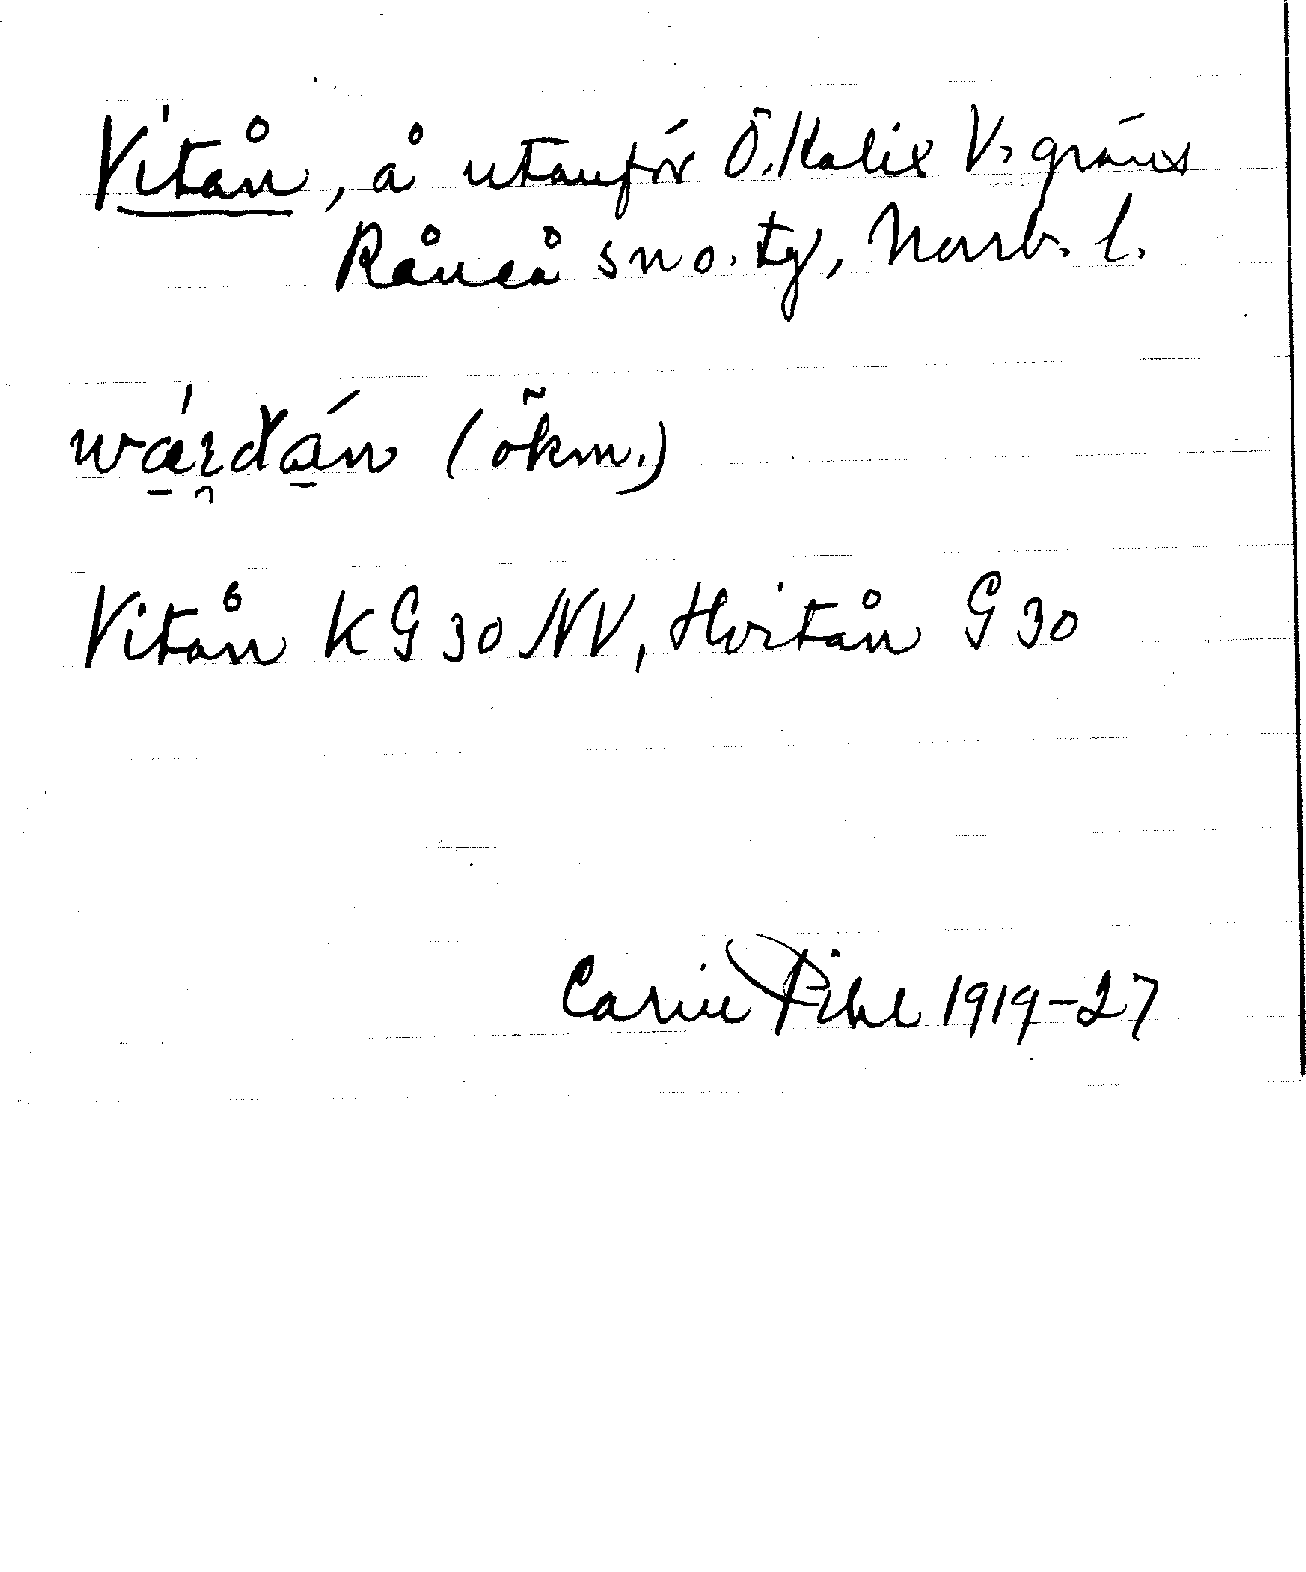 Vitån, å utanför Ö. Kalix V. gräns
Råneå sn o. tg, Norrb. l.
(ökm.)
Vitån KG 30 NV, Hvitån G 30
Carin Pihl 1919-27